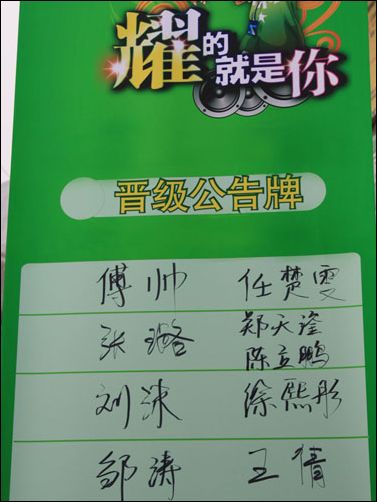 耀的
就是你
晋级公告牌
傅帅 任楚雯
张璐 郑天隆
陈立鹏
刘沫 徐熙彤
邹涛 王猜